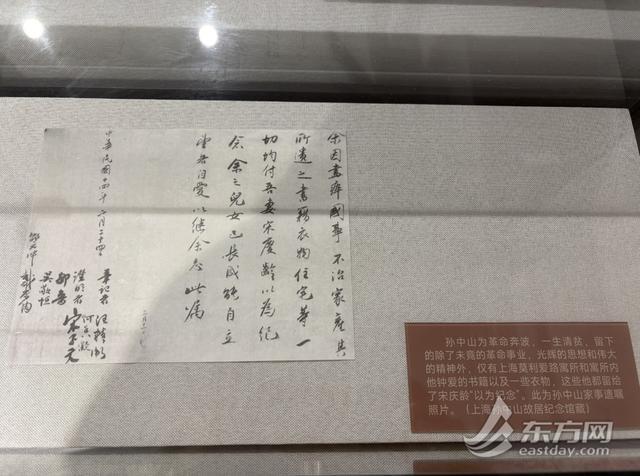 余因盡瘁國事不治家產其
所遺之書籍衣物住宅等一
切均付吾妻宋慶齡以為紀
念余之兒女已長成能自立
望各自愛以繼余志此囑
中華民國十四年二月二十四日
筆記者 汪精衛
證明者 何香凝
宋子文
鄒魯
吳敬恒
邵元冲
戴恩賽
孙中山为革命奔波，一生清贫，留下
的除了未竟的革命事业，光辉的思想和伟大
的精神外，仅有上海莫利爱路寓所和寓所内
他钟爱的书籍以及一些衣物，这些他都留给
了宋庆龄“以为纪念”。此为孙中山家事遗嘱
照片。（上海孙中山故居纪念馆藏）
东方网
eastday.com